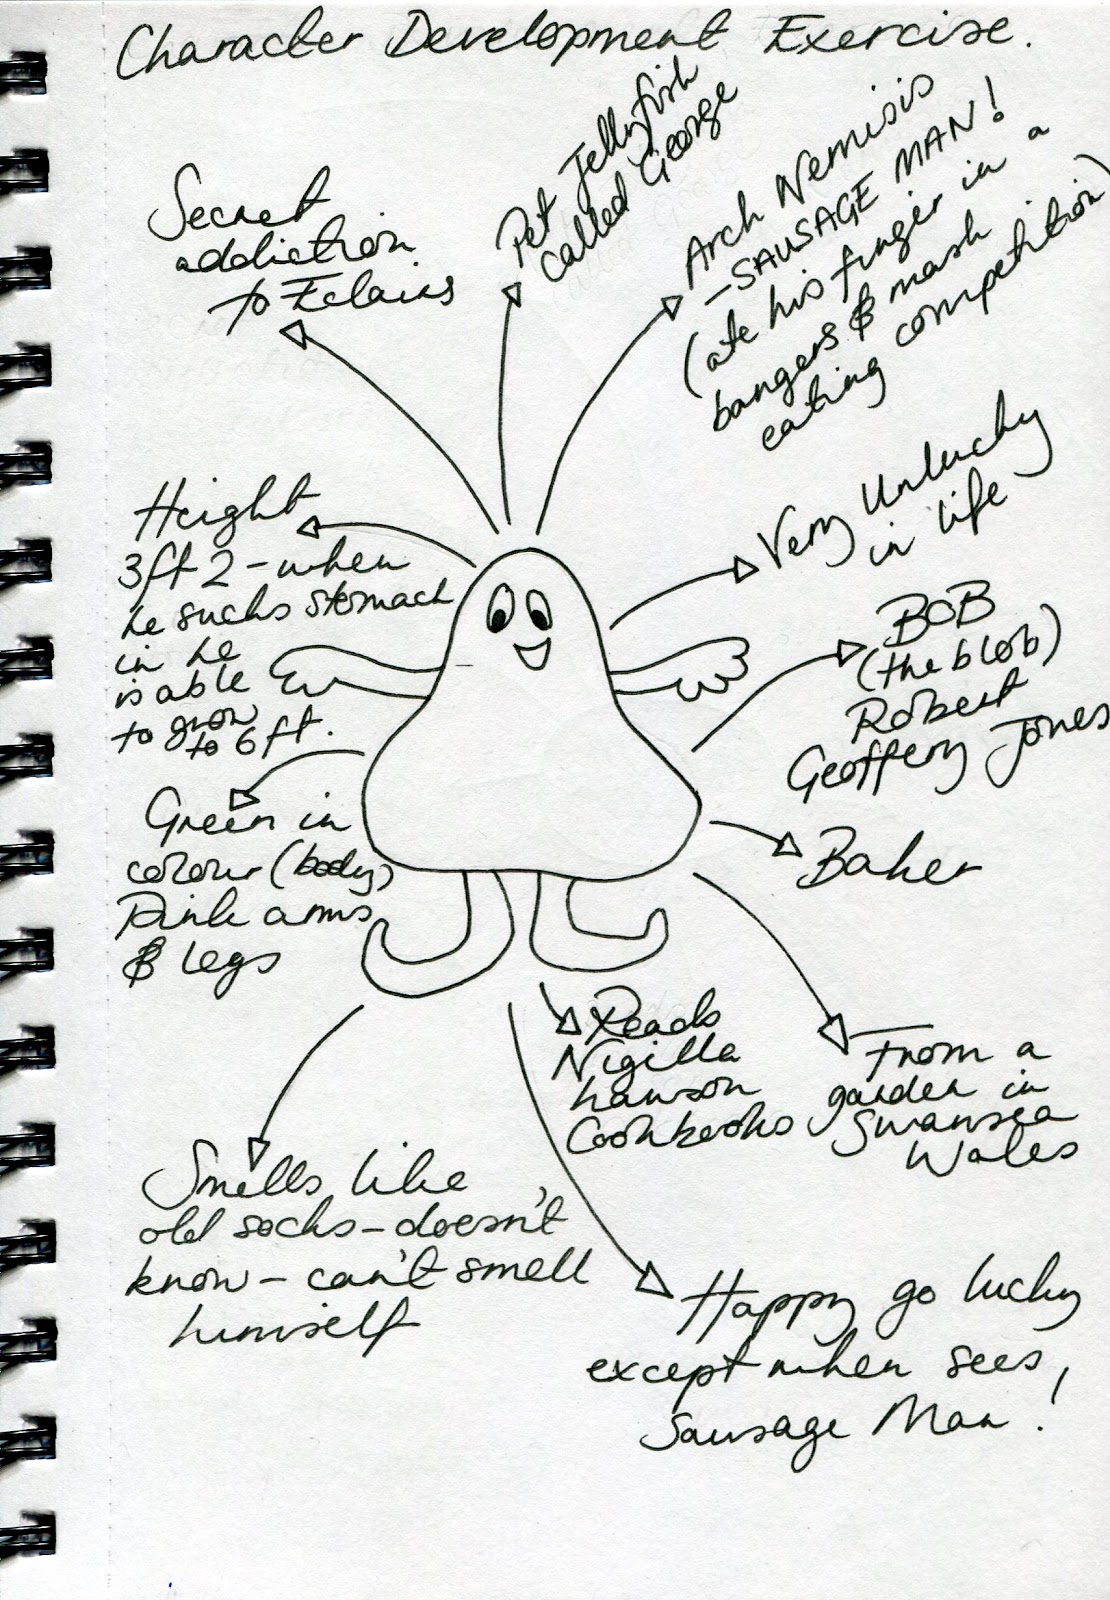 Character Development Exercise.
Secret
addiction
to Eclairs
Pet Jellyfish
called George
Arch Nemisis
- SAUSAGE MAN!
(ate his finger in a
bangers & mash
eating competition)
Height
3ft 2 - when
he sucks stomach
in he
is able
to grow
to 6ft.
Very Unlucky
in life
BOB
(the blob)
Robert
Geoffery Jones
Green in
colour (body)
Pink arms
& legs
Baker
Reads
Nigilla
Lawson
Cookbooks
From a
garden in
Swansea
Wales
Smells like
old socks - doesn't
know - can't smell
himself
Happy go lucky
except when sees,
Sausage Man!